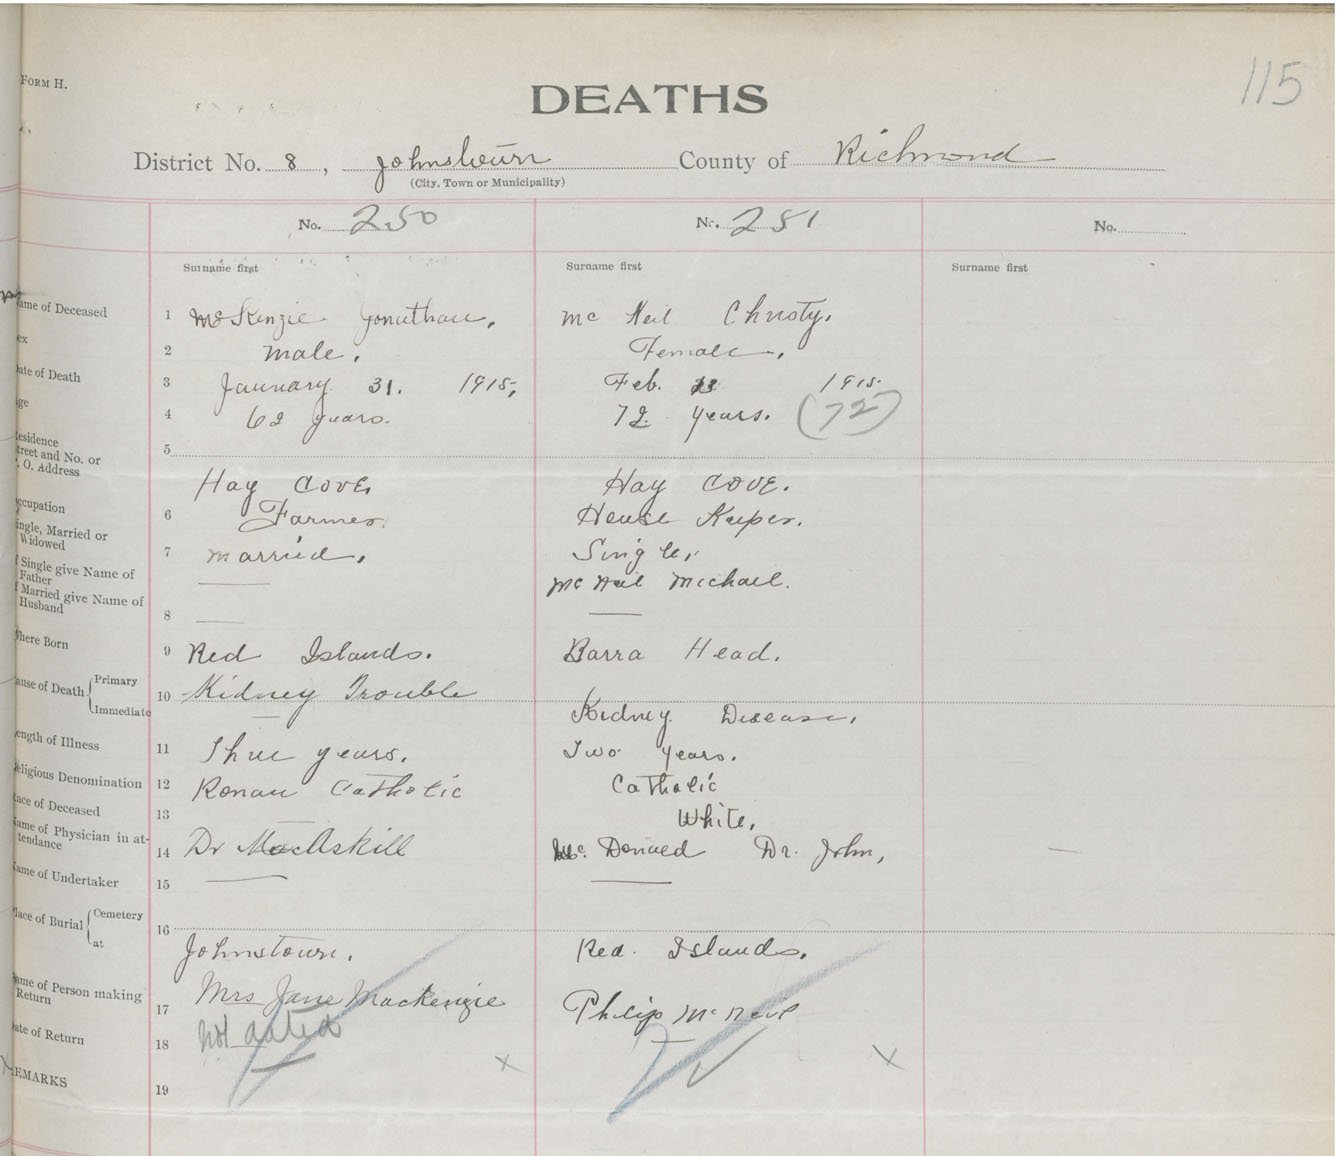 FORM H.
115
DEATHS
District No. 8, Johnstown County of Richmond
(City, Town or Municipality)
No. 250 No. 251 No.
Surname first Surname first Surname first
ame of Deceased 1 McKenzie Jonathan, Mc Neil Christy,
ex 2 male, Female,
ate of Death 3 January 31. 1915, Feb. 1915.
ge 4 62 years. 72 years. (72)
esidence
treet and No. or 5
. O. Address
Hay Cove Hay Cove.
ccupation 6 Farmer. House Keeper.
ingle, Married or
Widowed 7 married, Single,
f Single give Name of
Father
Mc Neil Michael.
f Married give Name of
Husband 8
here Born 9 Red Islands. Barra Head.
ause of Death Primary 10 Kidney Trouble
Immediate Kidney Disease,
ength of Illness 11 Three years. Two years.
eligious Denomination 12 Roman Catholic Catholic
ace of Deceased 13 White,
ame of Physician in at-
tendance 14 Dr MacAskill Mc. Donald Dr. John,
ame of Undertaker 15
lace of Burial Cemetery 16
at Johnstown, Red Islands.
ame of Person making
Return 17 Mrs Jane Mackenzie Philip McNeil
ate of Return 18 Not dated
EMARKS 19
x x